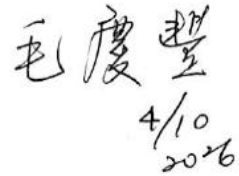 毛慶豐
4/10
2026